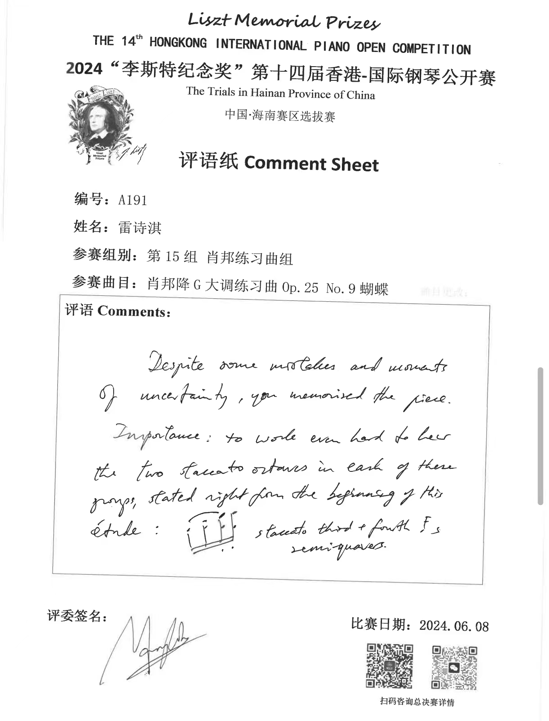 Liszt Memorial Prizes
THE 14th HONGKONG INTERNATIONAL PIANO OPEN COMPETITION
2024“李斯特纪念奖”第十四届香港-国际钢琴公开赛
The Trials in Hainan Province of China
中国·海南赛区选拔赛
评语纸 Comment Sheet
编号：A191
姓名：雷诗淇
参赛组别：第 15 组 肖邦练习曲组
参赛曲目：肖邦降 G 大调练习曲 Op.25 No.9 蝴蝶
评语 Comments：
Despite some mistakes and moments
of uncertainty, you memorised the piece.
Importance: to work even hard to hear
the two staccato octaves in each of these
groups, stated right from the beginning of this
étude :
staccato third + fourth
semi-quavers.
评委签名：
比赛日期：2024.06.08
扫码咨询总决赛详情